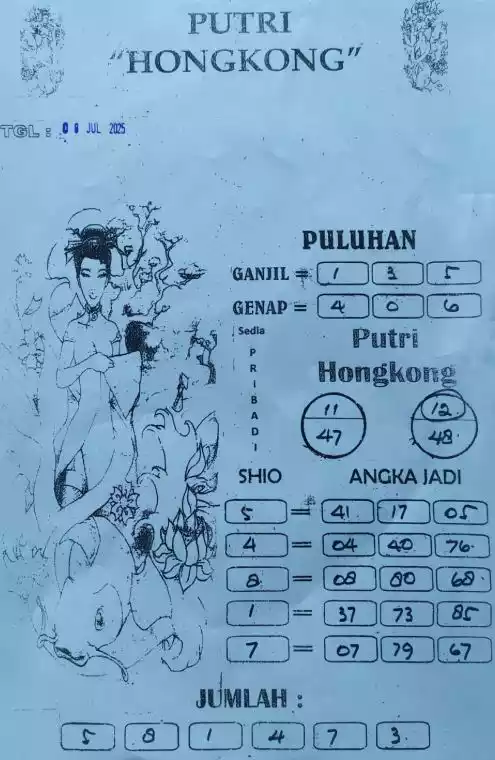 PUTRI
"HONGKONG"
TGL : 08 JUL 2025
PULUHAN
GANJIL = 1 3 5
GENAP = 4 0 6
Sedia
PRIBADI
Putri
Hongkong
11 12
47 48
SHIO ANGKA JADI
5 = 41 17 05
4 = 04 40 76
8 = 08 80 68
1 = 37 73 85
7 = 07 79 67
JUMLAH :
5 8 1 4 7 3